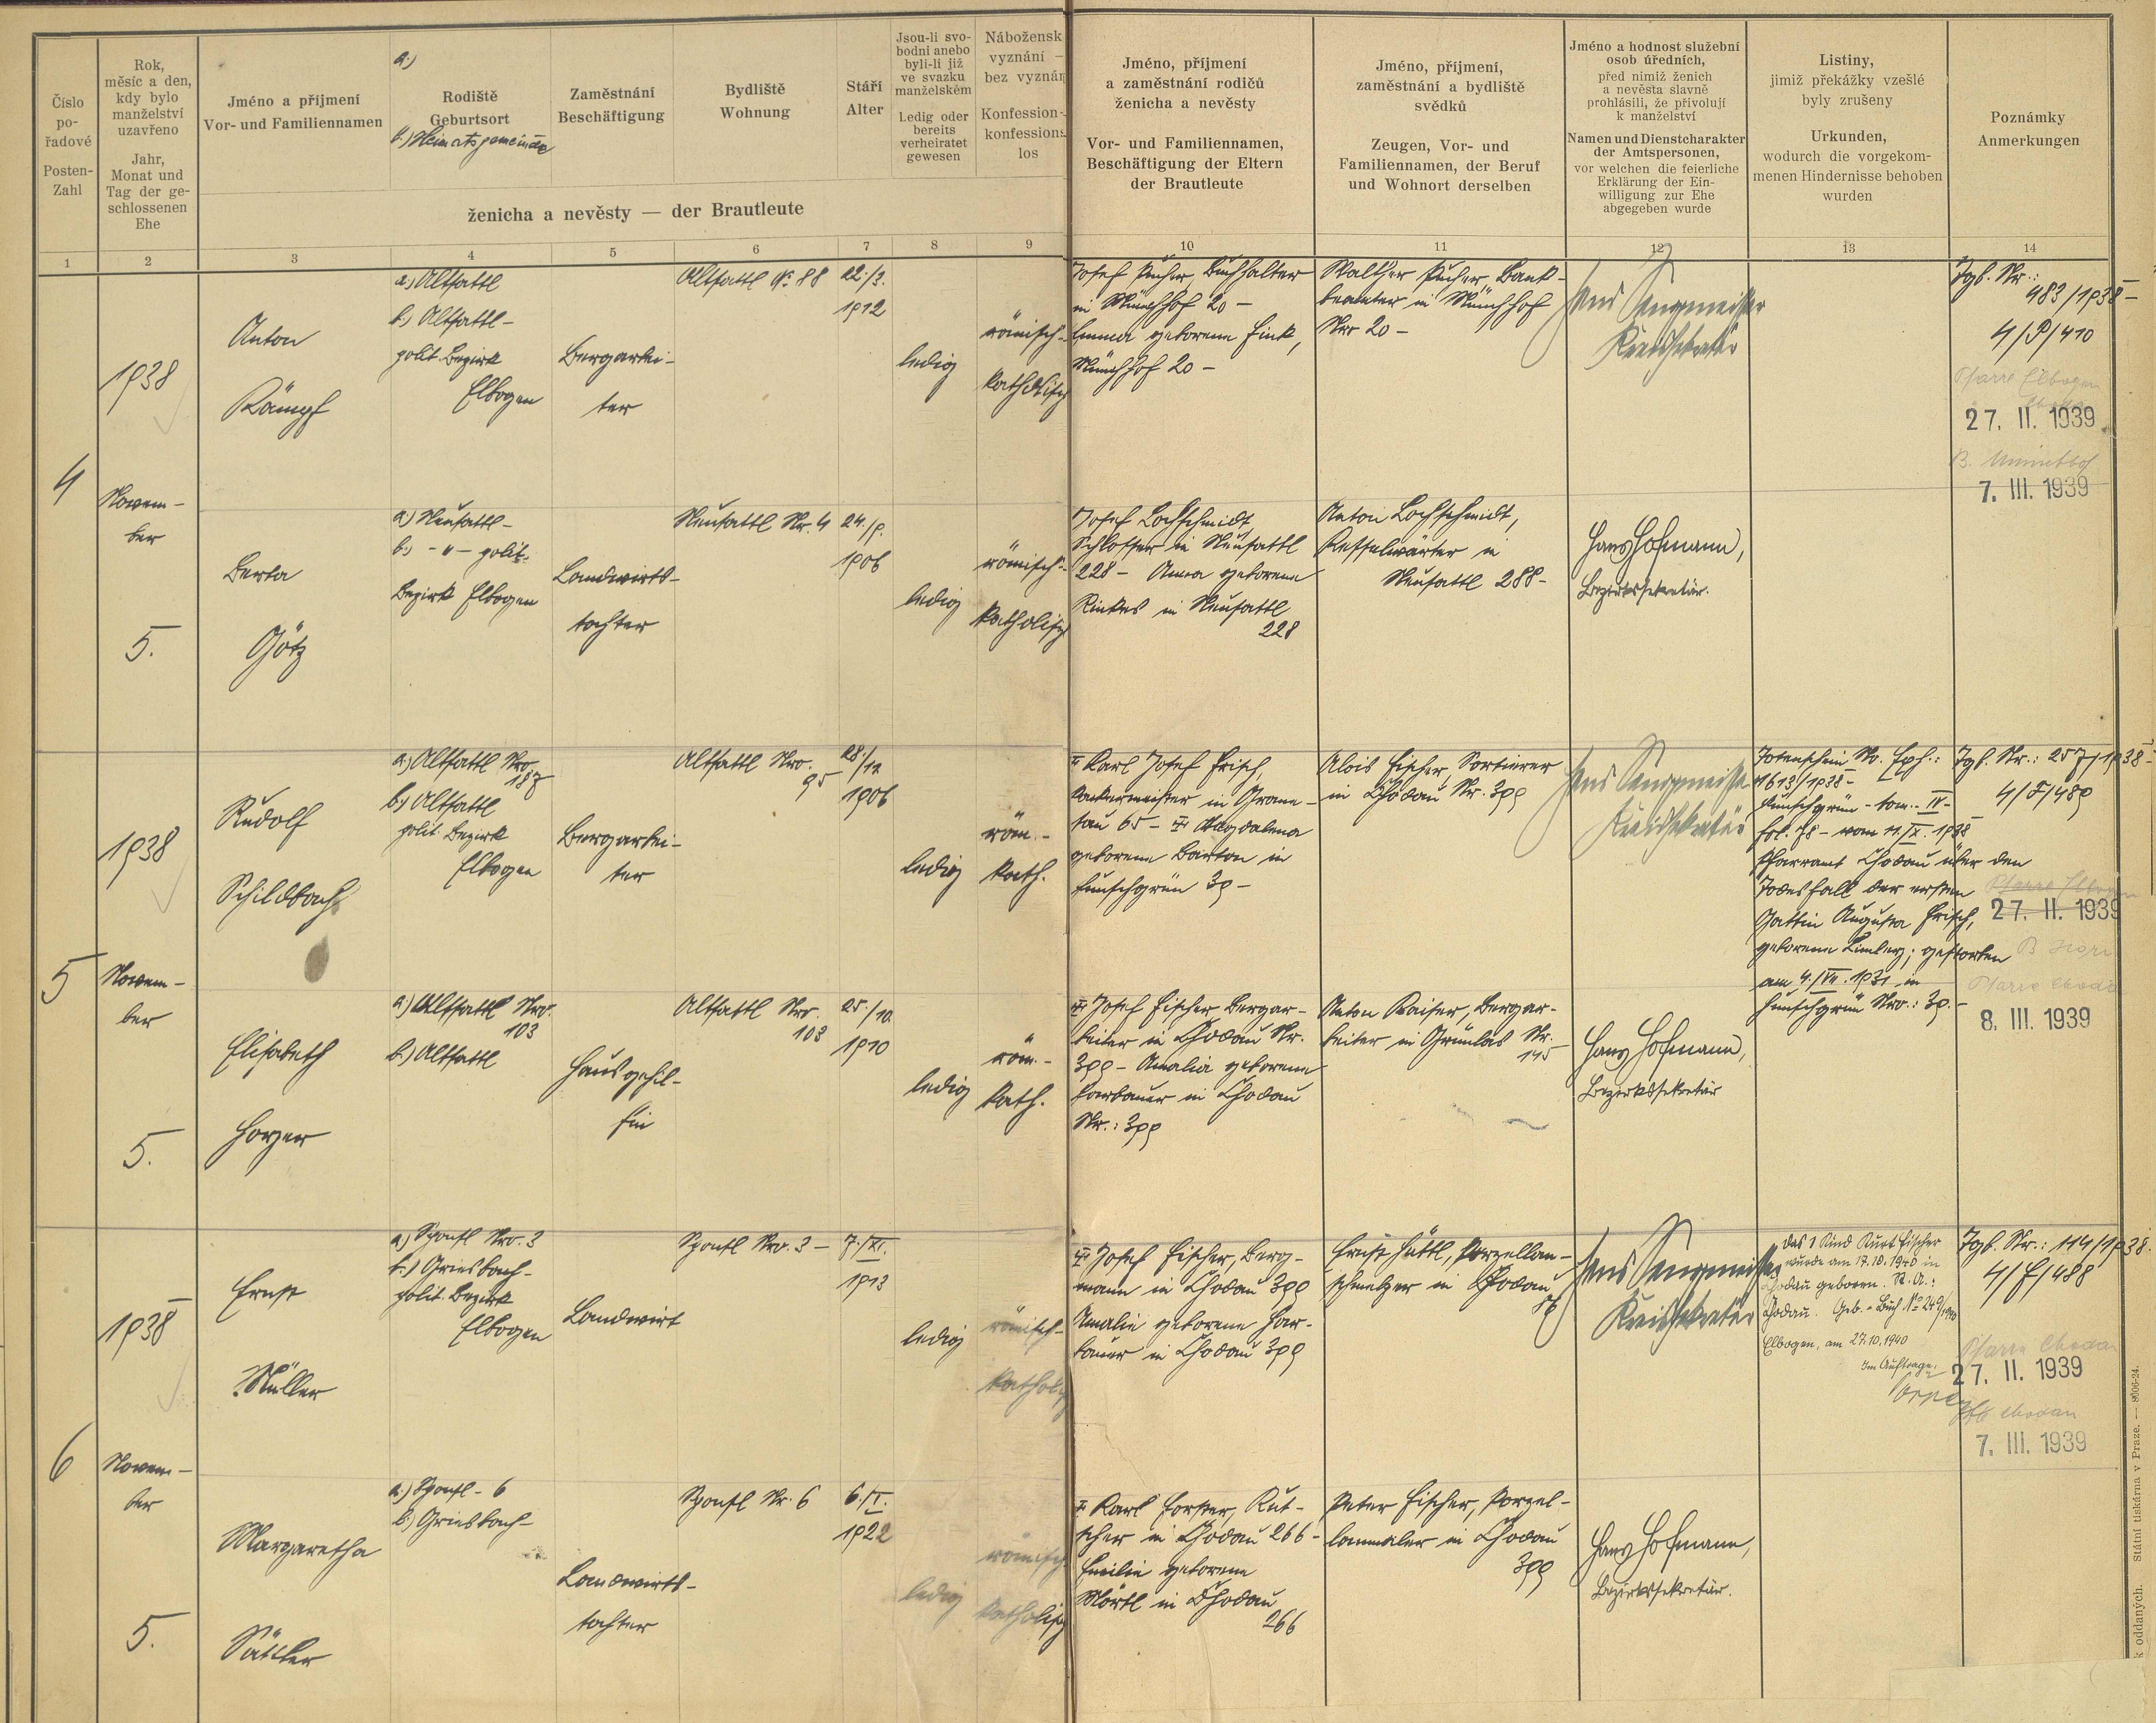 Číslo
po-
řadové
Posten-
Zahl
Rok,
měsíc a den,
kdy bylo
manželství
uzavřeno
Jahr,
Monat und
Tag der ge-
schlossenen
Ehe
Jméno a příjmení
Vor- und Familiennamen
a.)
Rodiště
Geburtsort
b.) Heimatsgemeinde
Zaměstnání
Beschäftigung
Bydliště
Wohnung
Stáří
Alter
Jsou-li svo-
bodni anebo
byli-li již
ve svazku
manželském
Ledig oder
bereits
verheiratet
gewesen
Nábožensk
vyznání –
bez vyznán
Konfession-
konfessions
los
ženicha a nevěsty — der Brautleute
Jméno, příjmení
a zaměstnání rodičů
ženicha a nevěsty
Vor- und Familiennamen,
Beschäftigung der Eltern
der Brautleute
Jméno, příjmení,
zaměstnání a bydliště
svědků
Zeugen, Vor- und
Familiennamen, der Beruf
und Wohnort derselben
Jméno a hodnost služební
osob úředních,
před nimiž ženich
a nevěsta slavně
prohlásili, že přivolují
k manželství
Namen und Dienstcharakter
der Amtspersonen,
vor welchen die feierliche
Erklärung der Ein-
willigung zur Ehe
abgegeben wurde
Listiny,
jimiž překážky vzešlé
byly zrušeny
Urkunden,
wodurch die vorgekom-
menen Hindernisse behoben
wurden
Poznámky
Anmerkungen
1 2 3 4 5 6 7 8 9 10 11 12 13 14
4
1938
Novem-
ber
5.
Anton
Kämpf
a.) Altsattl
b.) Altsattl-
polit. Bezirk
Elbogen
Bergarbei-
ter
Altsattl No 88
22./3.
1912
ledig
römisch-
katholisch
Josef Pucher, Buchhalter
in Münchhof 20 –
Emma geborene Fink,
Münchhof 20 –
Walther Pucher, Bank-
beamter in Münchhof
Nr 20 –
Hans
Kreissekretär
Tgb. Nr.:
483/1938 –
4/P/410
Pfarre Elbogen
27. II. 1939
7. III. 1939
Berta
Götz
a.) Neusattl-
b.) – " – polit.
Bezirk Elbogen
Landwirts-
tochter
Neusattl Nr. 4
24./9.
1906
ledig
römisch-
katholisch
Josef Lochschmidt,
Schlosser in Neusattl
228 – Anna geborene
in Neusattl
228
Anton Lochschmidt,
Kesselwärter in
Neusattl 288 –
Hans Hofmann,
Bezirkssekretär.
5
1938
Novem-
ber
5.
Rudolf
Schildbach
a.) Altsattl Nro.
187
b.) Altsattl
polit. Bezirk
Elbogen
Bergarbei-
ter
Altsattl Nro.
95
28./12
1906
ledig
röm.-
kath.
Karl Josef Frisch,
in Grane-
sau 65 – Magdalena
geborene Barton in
Funschgrün 39 –
Alois Fischer, Sortierer
in Chodau Nr. 399
Hans
Kreissekretär
Totenschein Nr. Exh.:
1613/1938 –
Funschgrün - tom. - IV -
fol. 78 – vom 11./X. 1938
Pfarramt Chodau über den
Todesfall der ersten
Gattin Augusta Frisch,
geborene; gestorben
am 4./VII. 1931 in
Funschgrün Nro.: 39. –
Tgb. Nr.: 257/1938 –
4/F/489
Pfarre Elbogen
27. II. 1939
Pfarre Chodau
8. III. 1939
Elisabeth
Horzer
a.) Altsattl Nro.
103
b.) Altsattl
Hausgehil-
fin
Altsattl Nro.
103
25./10.
1910
ledig
röm.-
kath.
Josef Fischer, Bergar-
beiter in Chodau Nr.
399 – Amalia geborene
Harbauer in Chodau
Nr.: 399
Anton Kaiser, Bergar-
beiter in Grünlas Nr.
145
Hans Hofmann,
Bezirkssekretär
6
1938
Novem-
ber
5.
Ernst
Müller
a.) Sponsl Nro. 3
b.) Griesbach-
polit. Bezirk
Elbogen
Landwirt
Sponsl Nro. 3 –
7./XI.
1913
ledig
römisch-
katholisch
Josef Fischer, Berg-
mann in Chodau 399
Amalie geborene Har-
bauer in Chodau 399
Ernst Hüttl, Porzellan-
schmelzer in Chodau
Hans
Kreissekretär
Das 1 Kind Kurt Fischer
wurde am 17.10.1940 in
Chodau geboren. St. A.:
Chodau. Geb.-Buch No 249/1940
Elbogen, am 27.10.1940
Im Auftrage:
Tgb. Nr.: 114/1938.
4/F/488
Pfarre Chodau
27. II. 1939
Chodau
7. III. 1939
Margaretha
Sattler
a.) Sponsl - 6
b.) Griesbach-
Landwirts-
tochter
Sponsl Nr. 6
6./I.
1922
ledig
römisch
katholisch
Karl Forster, Kut-
scher in Chodau 266 –
Emilie geborene
Mörtl in Chodau
266
Peter Fischer, Porzel-
lanmaler in Chodau
399
Hans Hofmann,
Bezirkssekretär.
k oddaných. Státní tiskárna v Praze. — 8006-24.